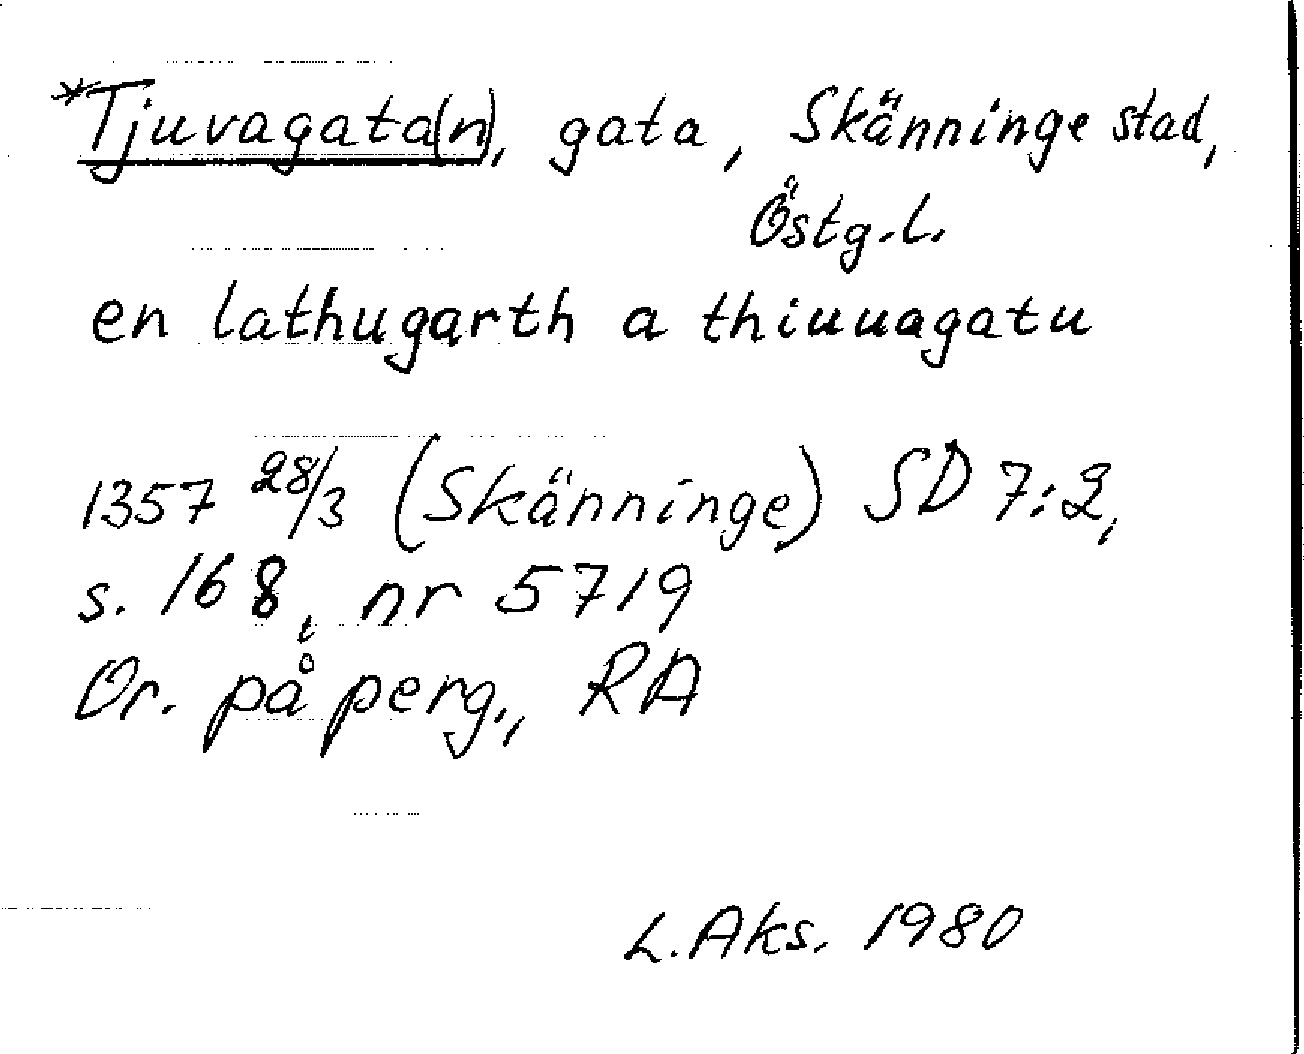 *Tjuvagata(n), gata, Skänninge stad,
Östg.l.
en lathugarth a thiuuagatu
1357 28/3 (Skänninge) SD 7:2,
s. 168, nr 5719
Or. på perg., RA
L. Aks. 1980